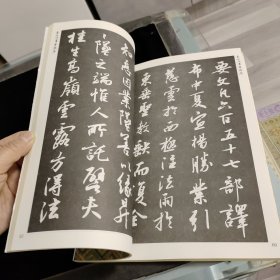 要文凡六百五十七部譯
布中夏宣揚勝業引
慈雲於西極注法雨於
東垂聖教缺而復全
知惡因業墜善以緣昇
〻墜之端惟人所託譬夫
桂生高嶺雲露方得泫